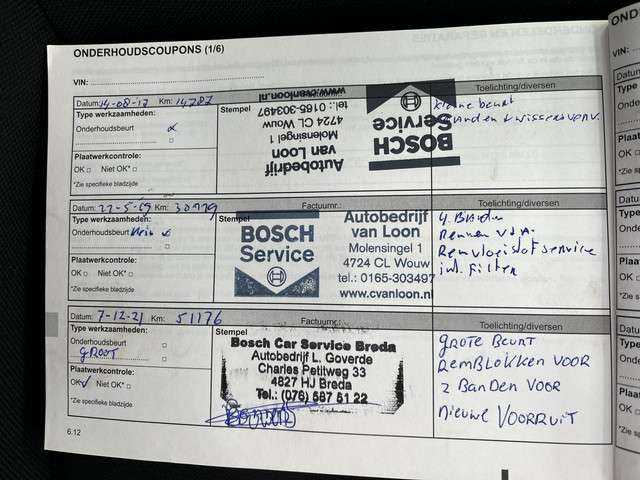 ONDERHOUDSCOUPONS (1/6)
VIN:
Datum: 14-08-17 Km: 14787
Stempel
Toelichting/diversen
Type werkzaamheden:
Onderhoudsbeurt
Plaatwerkcontrole:
OK □ Niet OK* □
*Zie specifieke bladzijde
BOSCH
Service
Autobedrijf
van Loon
Molensingel 1
4724 CL Wouw
tel.: 0165-303497
www.cvanloon.nl
kleine beurt
Datum: Km:
Factuurnr.:
Toelichting/diversen
Type werkzaamheden:
Onderhoudsbeurt klein
Plaatwerkcontrole:
OK □ Niet OK* □
*Zie specifieke bladzijde
Stempel
BOSCH
Service
Autobedrijf
van Loon
Molensingel 1
4724 CL Wouw
tel.: 0165-303497
www.cvanloon.nl
4 Banden
Remmen V+A.
Remvloeistof service
inl. Filter
Datum: 7-12-21 Km: 51176
Factuurnr.:
Toelichting/diversen
Type werkzaamheden:
Onderhoudsbeurt
GROOT
Plaatwerkcontrole:
OK Niet OK* □
*Zie specifieke bladzijde
Stempel
Bosch Car Service Breda
Autobedrijf L. Goverde
Charles Petitweg 33
4827 HJ Breda
Tel.: (076) 587 51 22
GROTE BEURT
REMBLOKKEN VOOR
2 BANDEN VOOR
NIEUWE VOORRUIT
6.12